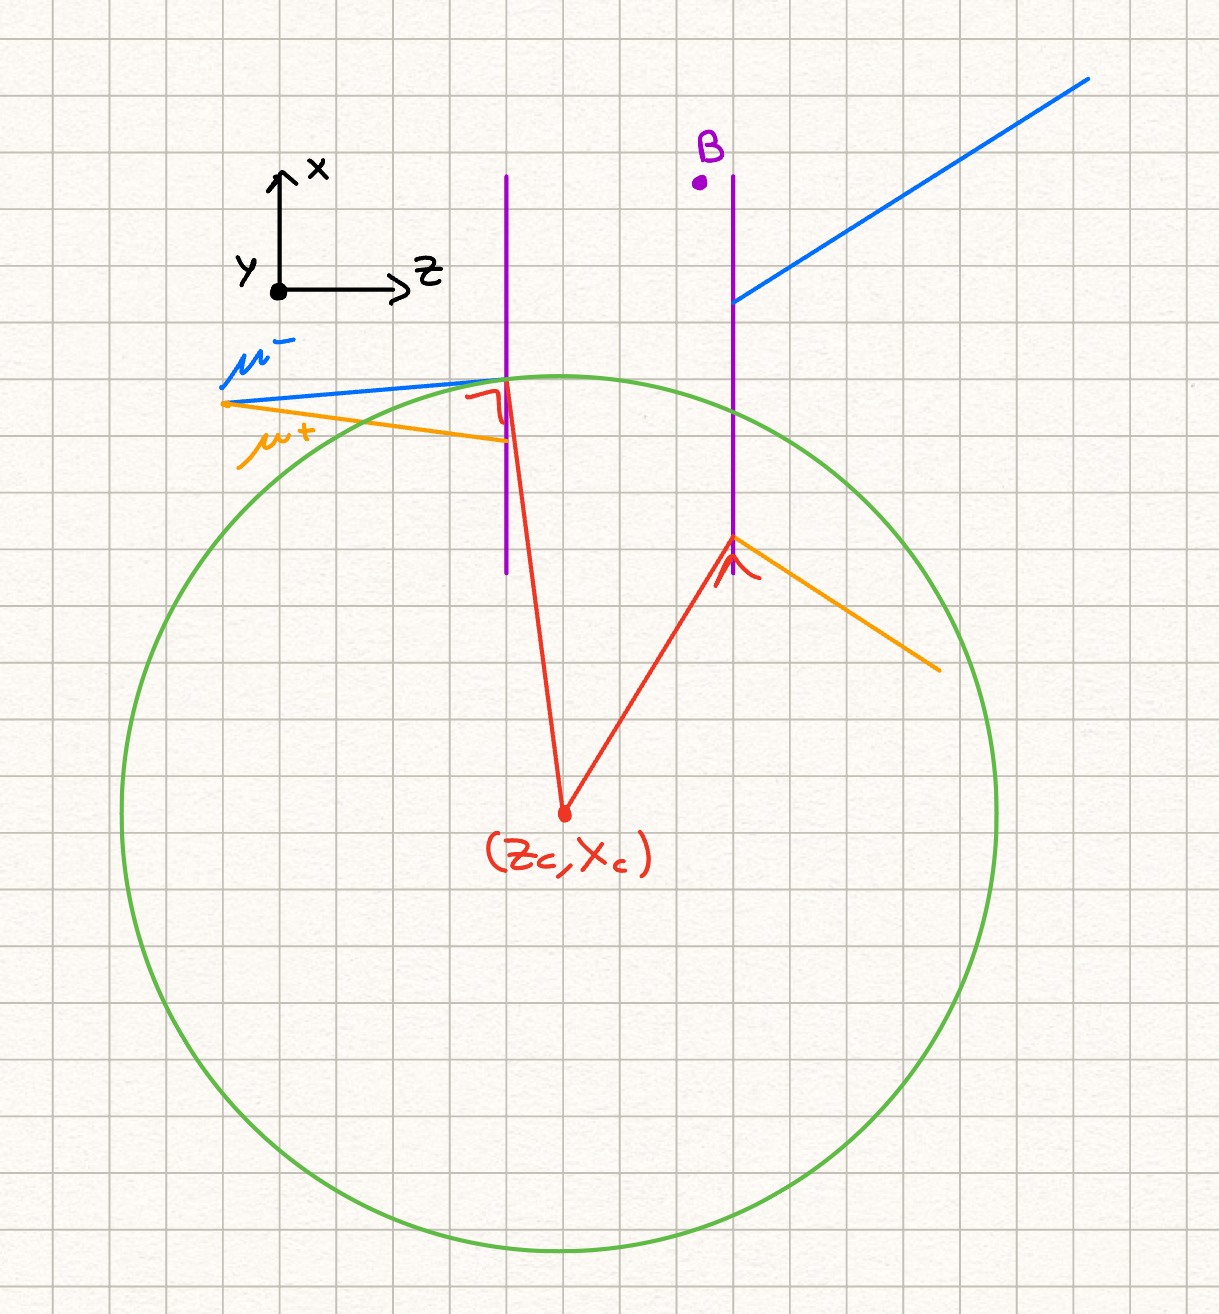 B
x
y
z
μ⁻
μ⁺
(Zc, Xc)